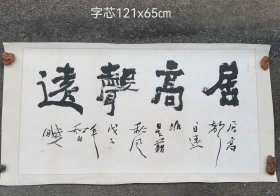 字芯121x65cm
居高聲遠
居高
聲自遠
非是藉
秋风
戊子
年